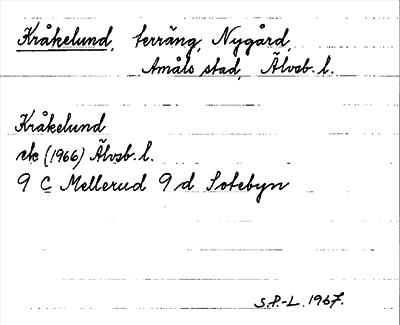 Kråkelund, terräng, Nygård,
Åmåls stad, Älvsb. l.
Kråkelund
ek (1966) Älvsb. l.
9 C Mellerud 9 d Sotebyn
S.P.-L. 1967.